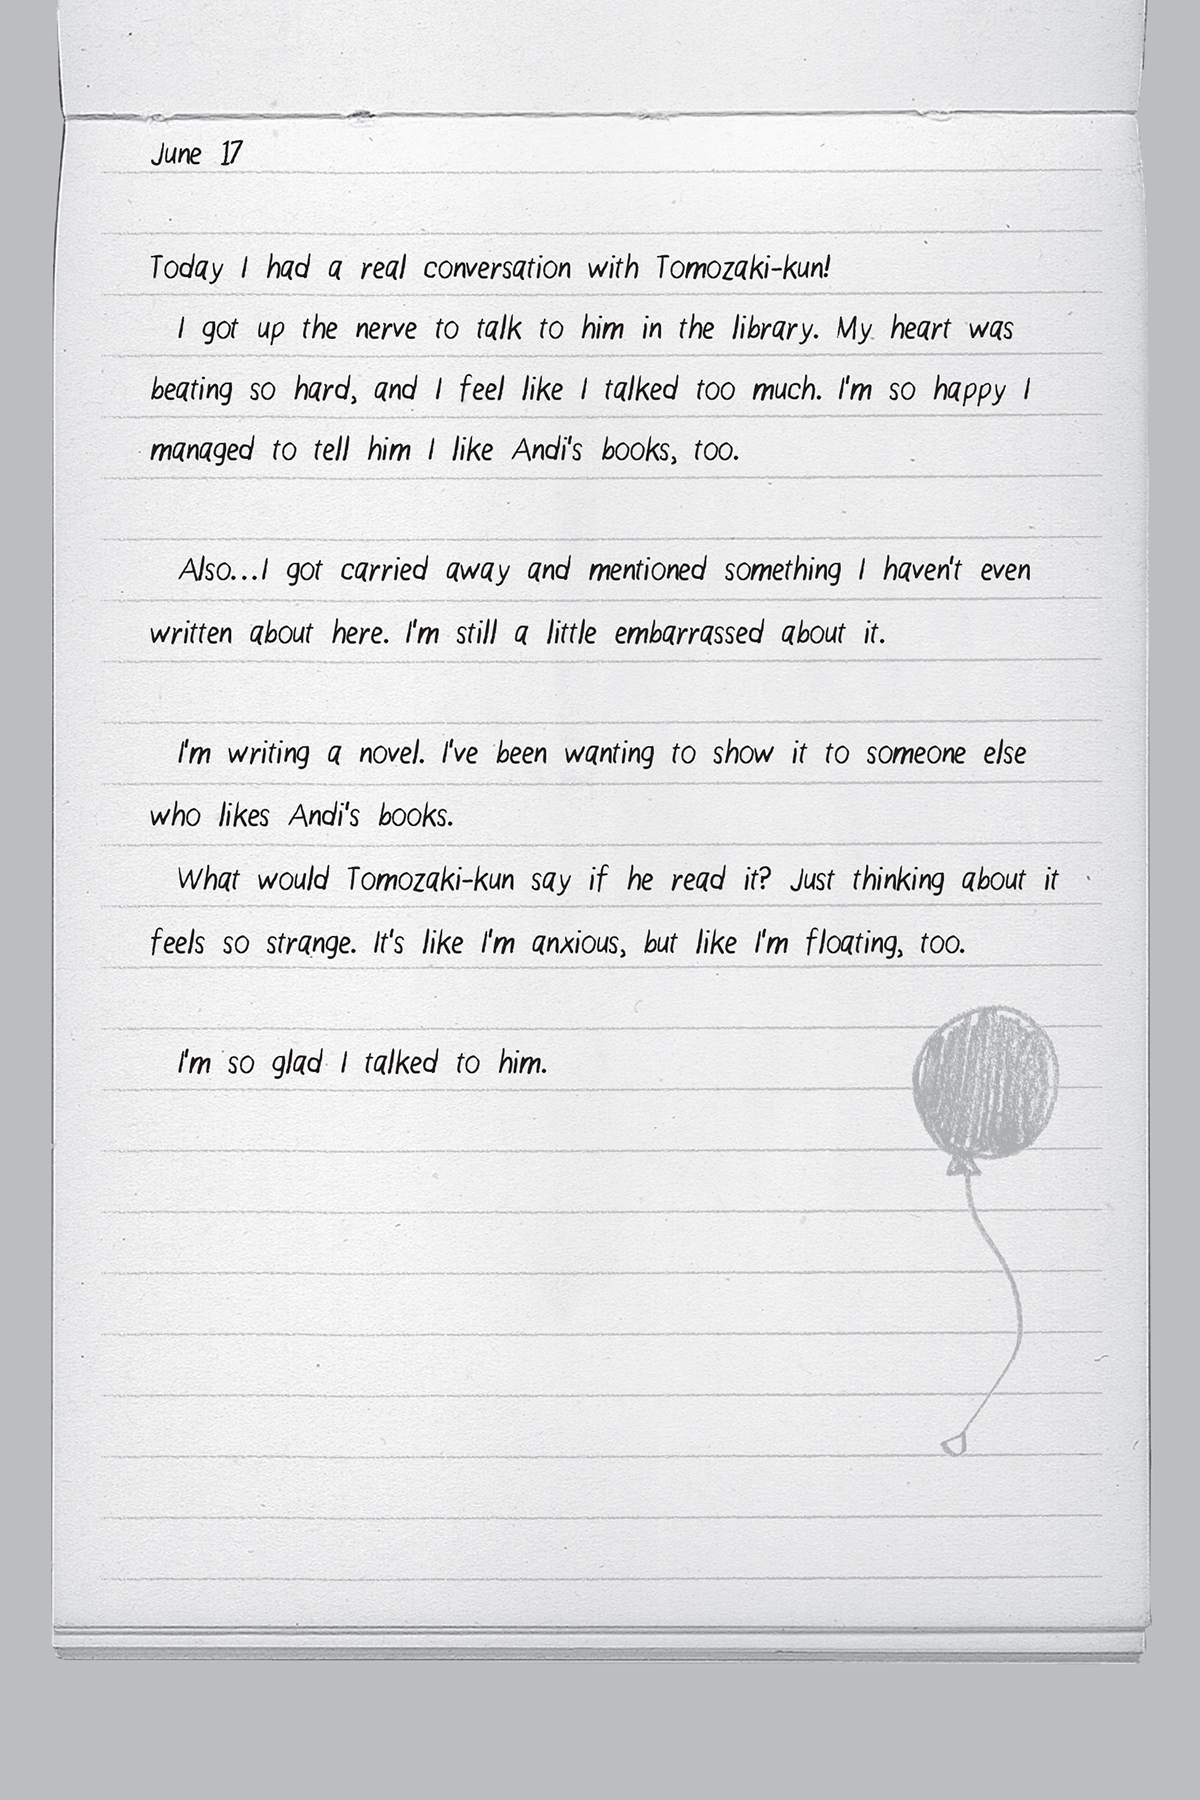 June 17
Today I had a real conversation with Tomozaki-kun!
I got up the nerve to talk to him in the library. My heart was
beating so hard, and I feel like I talked too much. I'm so happy I
managed to tell him I like Andi's books, too.
Also...I got carried away and mentioned something I haven't even
written about here. I'm still a little embarrassed about it.
I'm writing a novel. I've been wanting to show it to someone else
who likes Andi's books.
What would Tomozaki-kun say if he read it? Just thinking about it
feels so strange. It's like I'm anxious, but like I'm floating, too.
I'm so glad I talked to him.